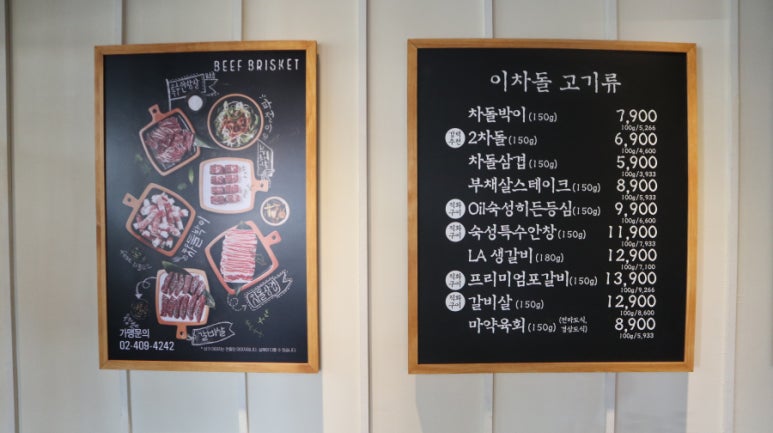 BEEF BRISKET
특수안창살
차돌박이
차돌삼겹
갈비살
가맹문의
02-409-4242
이차돌 고기류
차돌박이 (150g) 7,900
100g/5,266
강력추천 2차돌 (150g) 6,900
100g/4,600
차돌삼겹 (150g) 5,900
100g/3,933
부채살스테이크 (150g) 8,900
100g/5,933
직화구이 Oil숙성히든등심 (150g) 9,900
100g/6,600
직화구이 숙성특수안창 (150g) 11,900
100g/7,933
LA 생갈비 (180g) 12,900
100g/7,100
직화구이 프리미엄포갈비 (150g) 13,900
100g/9,266
직화구이 갈비살 (150g) 12,900
100g/8,600
마약육회 (150g) (전라도식, 경상도식) 8,900
100g/5,933